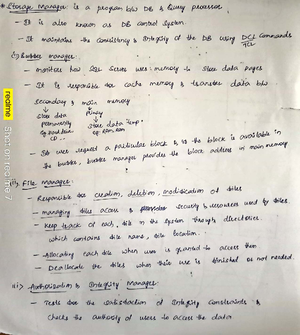 * Storage Manager is a program b/w DB & Query processor.
- It is also known as DB control System.
- It maintains the consistency & Integrity of the DB using DCL Commands
TCL
i) Buffer manager:-
- monitors how SQL Server uses memory to store data pages
- It is responsible for cache memory & transfer data b/w
secondary & main memory
store data
permanently
Eg hard disk
CD ...
store data temp.
eg RAM, ROM
requests a particular block & if the block is available in
the buffer, buffer manager provides the block address in main memory
ii) File manager:-
- Responsible for creation, deletion, modification of files
- managing files access & security & resources used by files.
- Keep track of each file in the system through directories.
which contains file name, file location.
- Allocating each file when user is granted to access them
- Deallocate the files when their use is finished or not needed.
iii) Authorization & Integrity Manager:-
- Tests for the satisfaction of Integrity constraints &
checks the authority of users to access the data
redmi